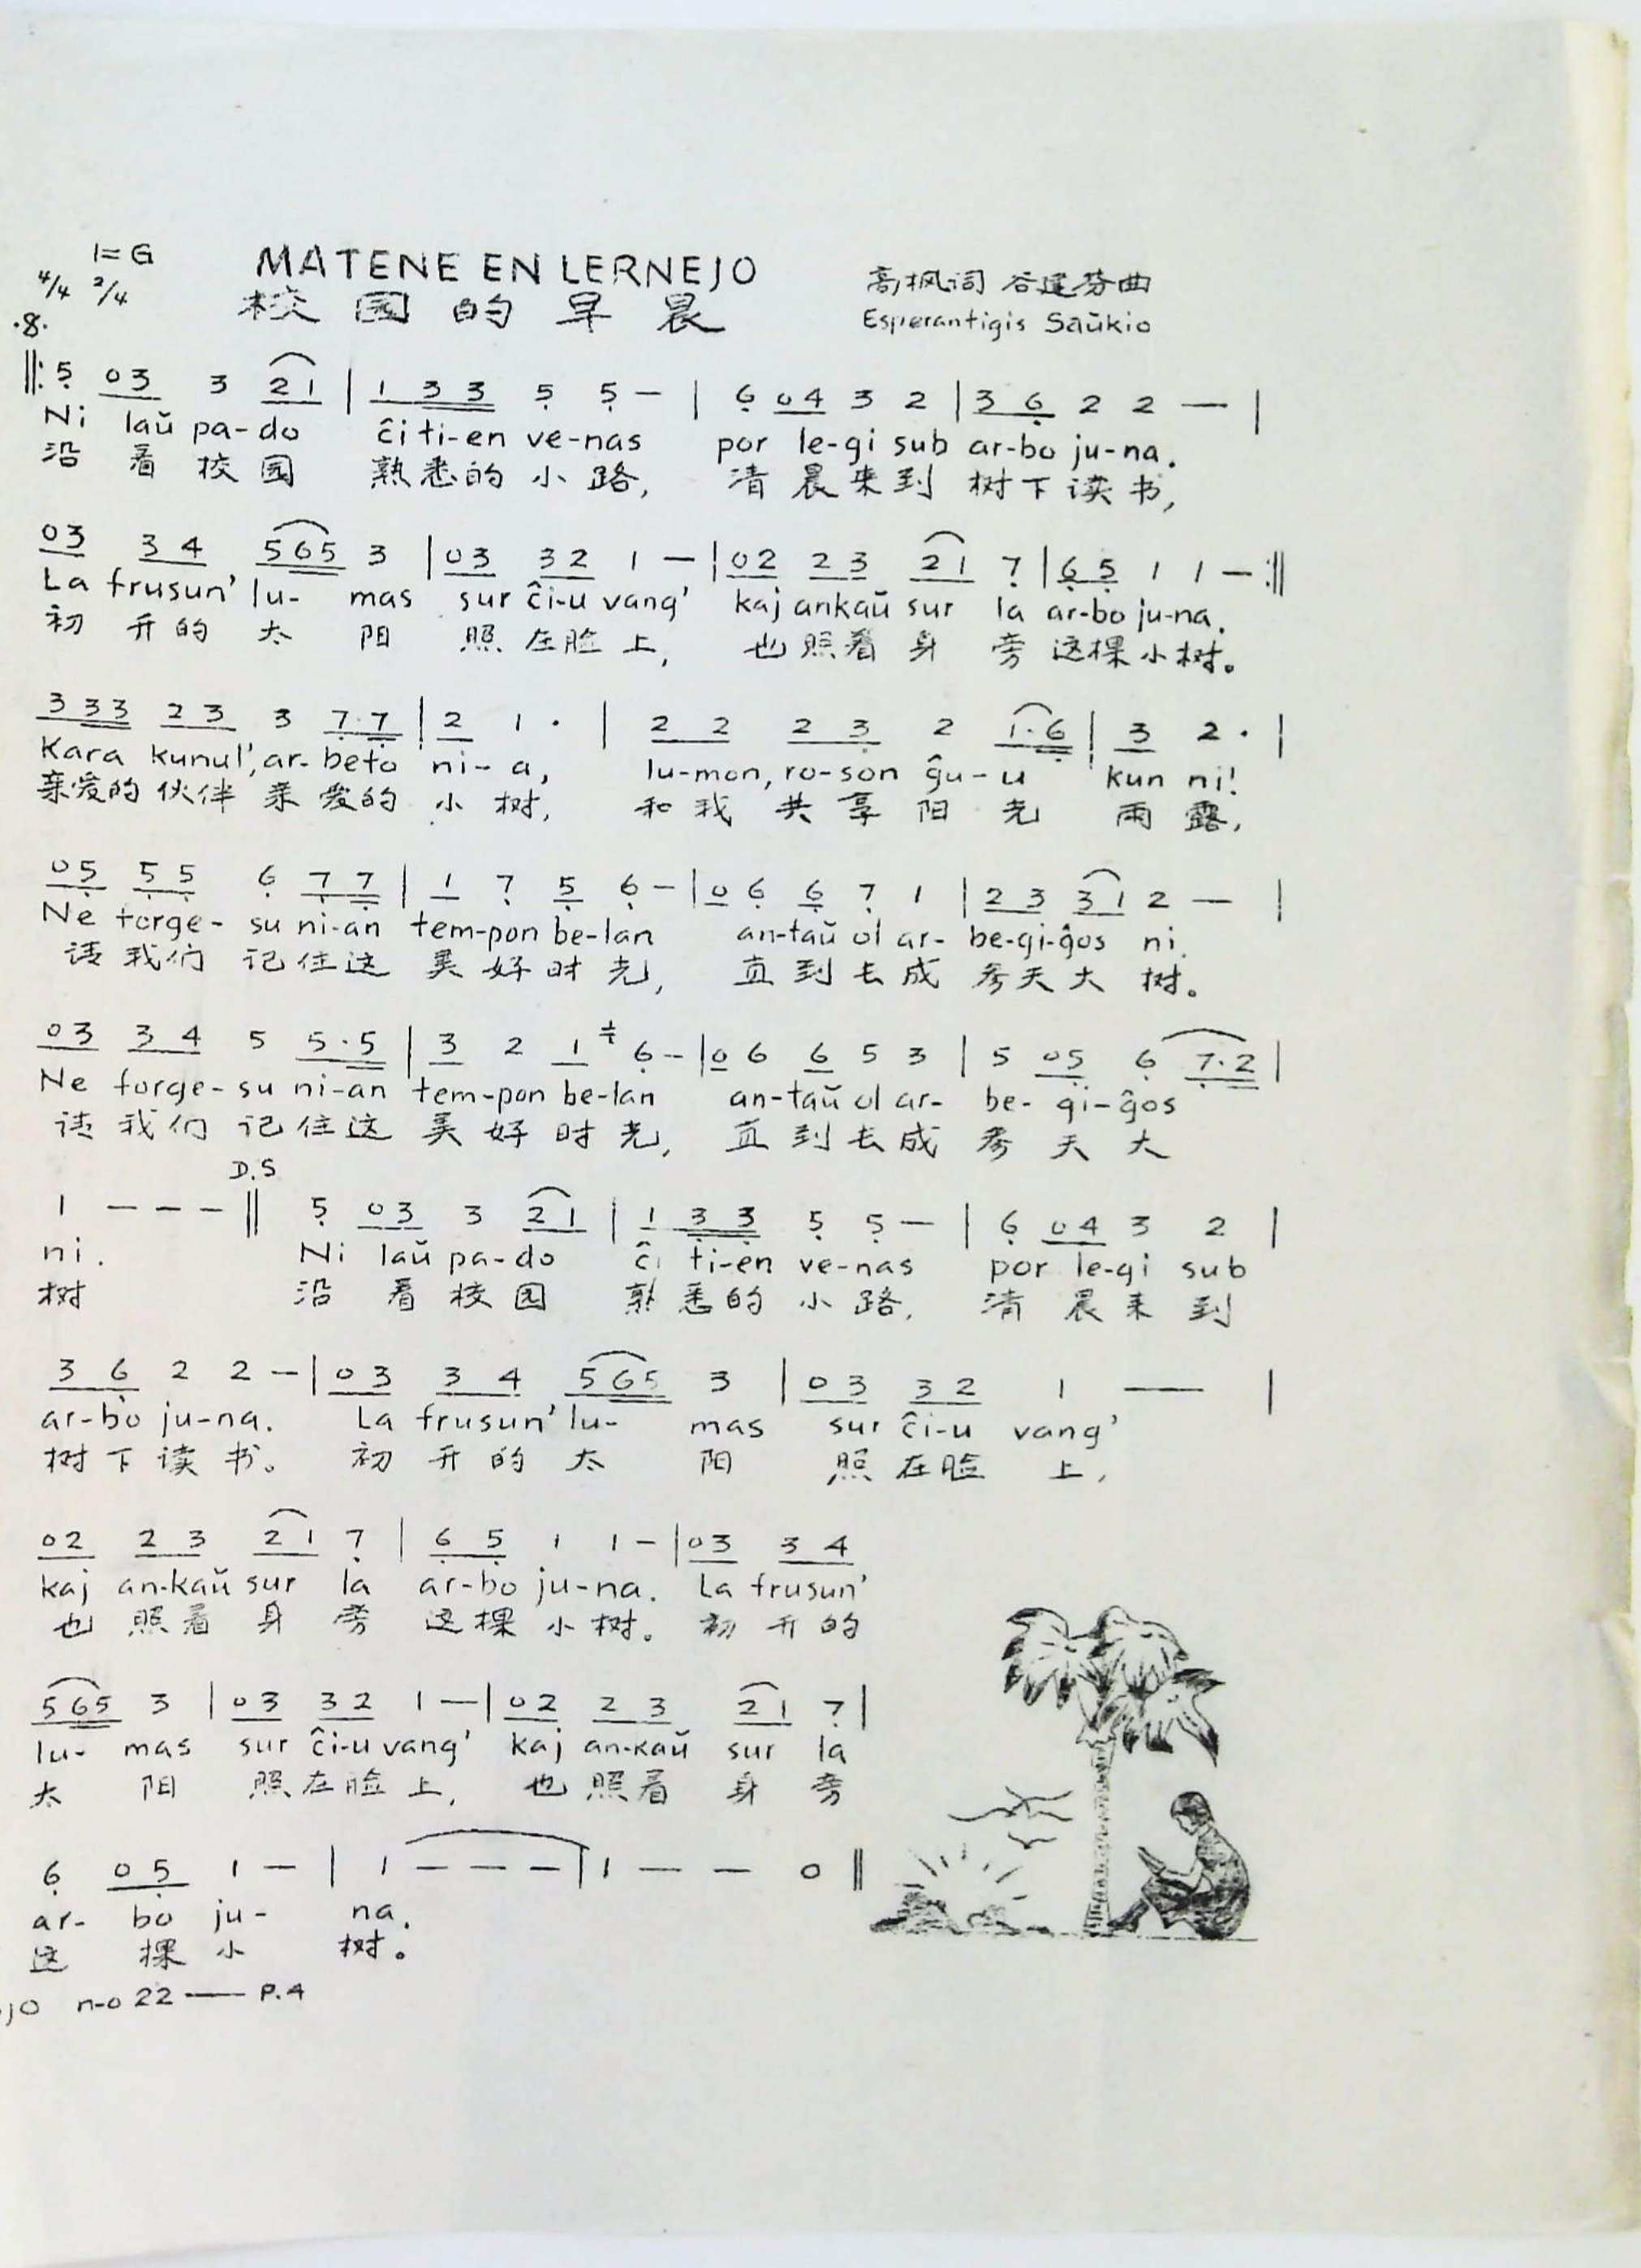 1=G
4/4 2/4
MATENE EN LERNEJO
校园的早晨
高枫词 谷建芬曲
Esperantigis Saŭkio
·8·
‖: 5 03 3 21 | 1 33 5 5 — | 6 04 3 2 | 3 6 2 2 — |
Ni laŭ pa-do ĉi ti-en ve-nas por le-gi sub ar-bo ju-na.
沿着校园 熟悉的小路, 清晨来到 树下读书,
03 34 565 3 | 03 32 1 — | 02 23 21 7 | 65 1 1 — :‖
La frusun' lu- mas sur ĉi-u vang' kaj ankaŭ sur la ar-bo ju-na.
初升的太阳 照在脸上, 也照着身旁 这棵小树。
333 23 3 7·7 | 2 1 · | 22 23 2 1·6 | 3 2 · |
Kara kunul', ar-beto ni-a, lu-mon, ro-son ĝu-u kun ni!
亲爱的伙伴 亲爱的小树, 和我共享阳光 雨露,
05 55 6 77 | 1 7 5 6 — | 0 6 6 7 1 | 23 31 2 — |
Ne forge-su ni-an tem-pon be-lan an-taŭ ol ar- be-gi-ĝos ni.
请我们 记住这 美好时光, 直到长成 参天大树。
03 34 5 5·5 | 3 2 1 6 — | 0 6 6 5 3 | 5 05 6 7·2 |
Ne forge-su ni-an tem-pon be-lan an-taŭ ol ar- be- gi-ĝos
请我们 记住这 美好时光, 直到长成 参天大
D.S
1 — — — ‖ 5 03 3 21 | 1 33 5 5 — | 6 04 3 2 |
ni. Ni laŭ pa-do ĉi ti-en ve-nas por le-gi sub
树 沿着校园 熟悉的小路, 清晨来到
3 6 2 2 — | 03 34 565 3 | 03 32 1 — |
ar-bo ju-na. La frusun' lu- mas sur ĉi-u vang'
树下读书。 初升的太阳 照在脸上,
02 23 21 7 | 65 1 1 — | 03 34
kaj an-kaŭ sur la ar-bo ju-na. La frusun'
也照着身旁 这棵小树。 初升的
565 3 | 03 32 1 — | 02 23 21 7 |
lu- mas sur ĉi-u vang' kaj an-kaŭ sur la
太阳 照在脸上, 也照着身旁
6 05 1 — | 1 — — — | 1 — — 0 ‖
ar- bo ju- na.
这棵小树。
jo n-o 22 — P.4